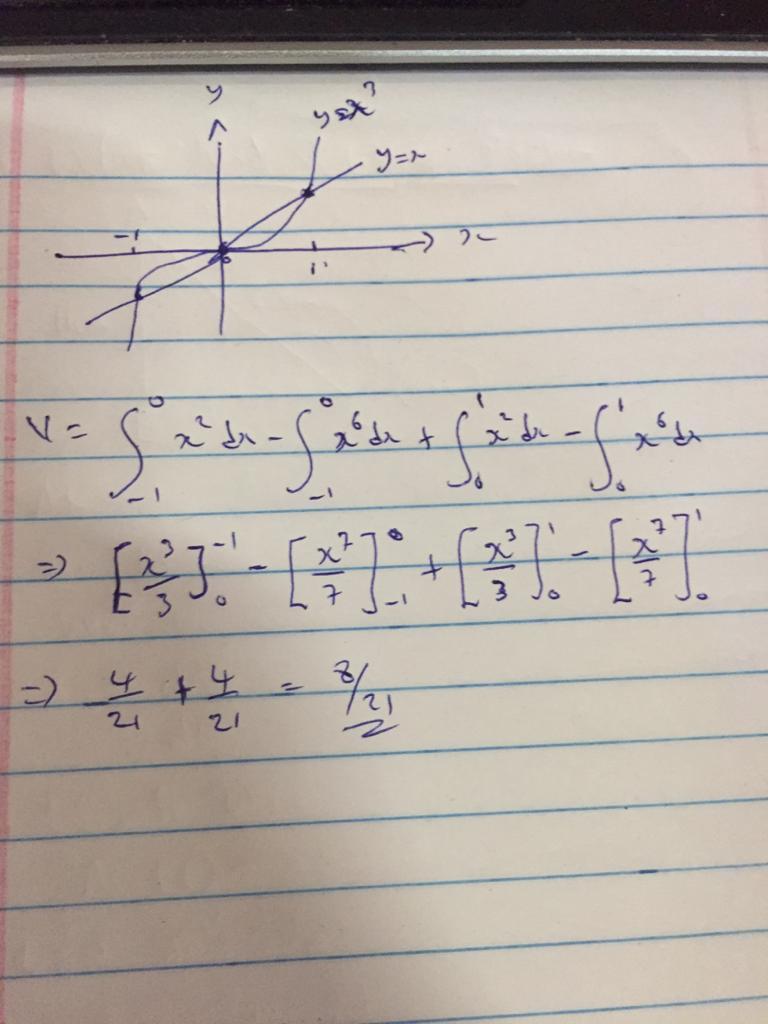 y
y=x³
y=x
-1 0 1 x
V = ∫₋₁⁰ x² dx - ∫₋₁⁰ x⁶ dx + ∫₀¹ x² dx - ∫₀¹ x⁶ dx
⇒ [x³/3]₀⁻¹ - [x⁷/7]₋₁⁰ + [x³/3]₀¹ - [x⁷/7]₀¹
⇒ 4/21 + 4/21 = 8/21